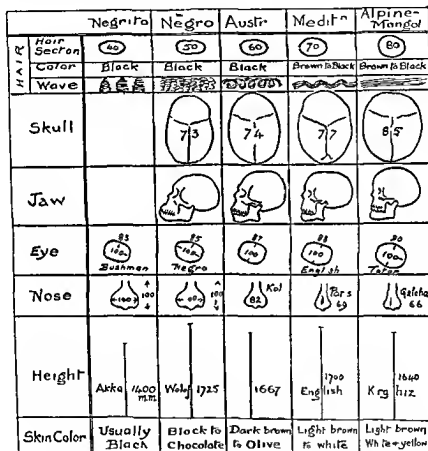 Negrito Negro Austr Meditn Alpine-Mongol
HAIR
Hair Section 40 50 60 70 80
Color Black Black Black Brown to Black Brown to Black
Wave
Skull 7 3 7 4 7 7 8 5
Jaw
Eye 83 100 85 100 87 100 88 100 90 100
Bushman Negro English Tatar
Nose 100 100 90 100 82 Kol Pars 69 Galcha 66
Height
Akka 1400 m.m. Wolof 1725 1667 English 1700 Krghiz 1640
Skin Color Usually Black Black to Chocolate Dark brown to Olive Light brown to white Light brown White + yellow